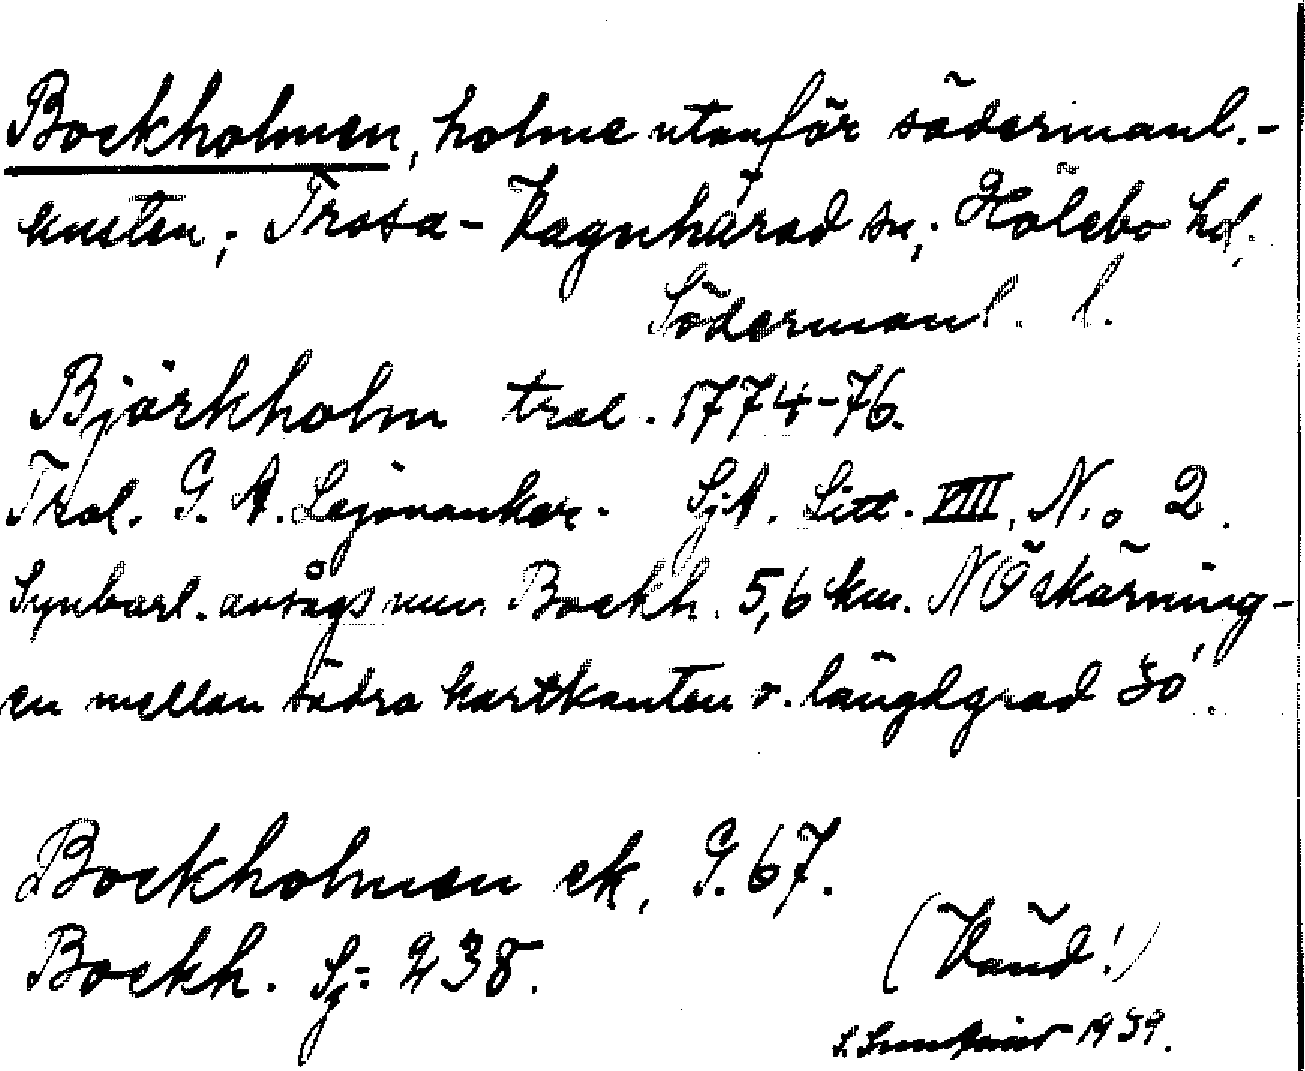 Bockholmen, holme utanför södermanl.-
kusten; Trosa-Vagnhärad sn; Hölebo hd;
Södermanl. l.
Björkholm tral. 1774-76.
Tral. G. A. Lejonankar. SjA. Litt. VIIII. N:o 2.
Synbarl. avsågs nuv. Bockh. 5,6 km. NÖ skärning-
en mellan södra kartkanten o. längdgrad 30'.
Bockholmen ek. G. 67.
Bockh. Sj: 238.
(Vänd!)
1939.